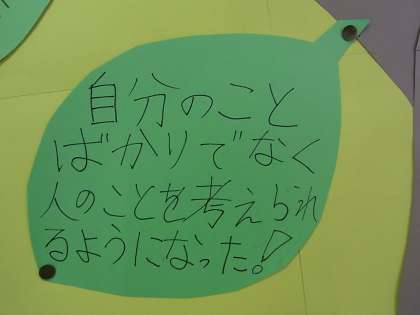 自分のこと
ばかりでなく
人のことを考えられ
るようになった!